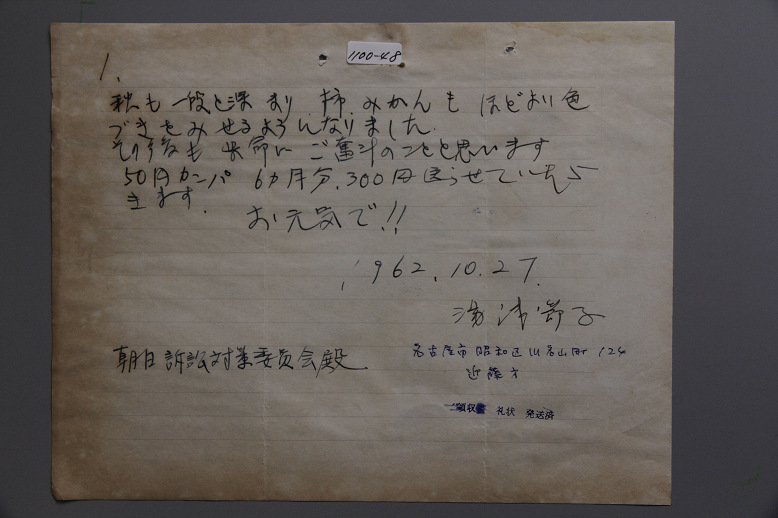 1100-48
1.
秋も一段と深まり、柿、みかんも ほどよい色
づきをみせるようになりました。
その後も 懸命に ご奮斗のことと思います
50円カンパ 6カ月分、300円送らせていただ
きます。
お元気で!!
1962.10.27.
湯浅節子
朝日訴訟対策委員会殿
名古屋市昭和区川名山町124
近藤方
領収書 礼状 発送済